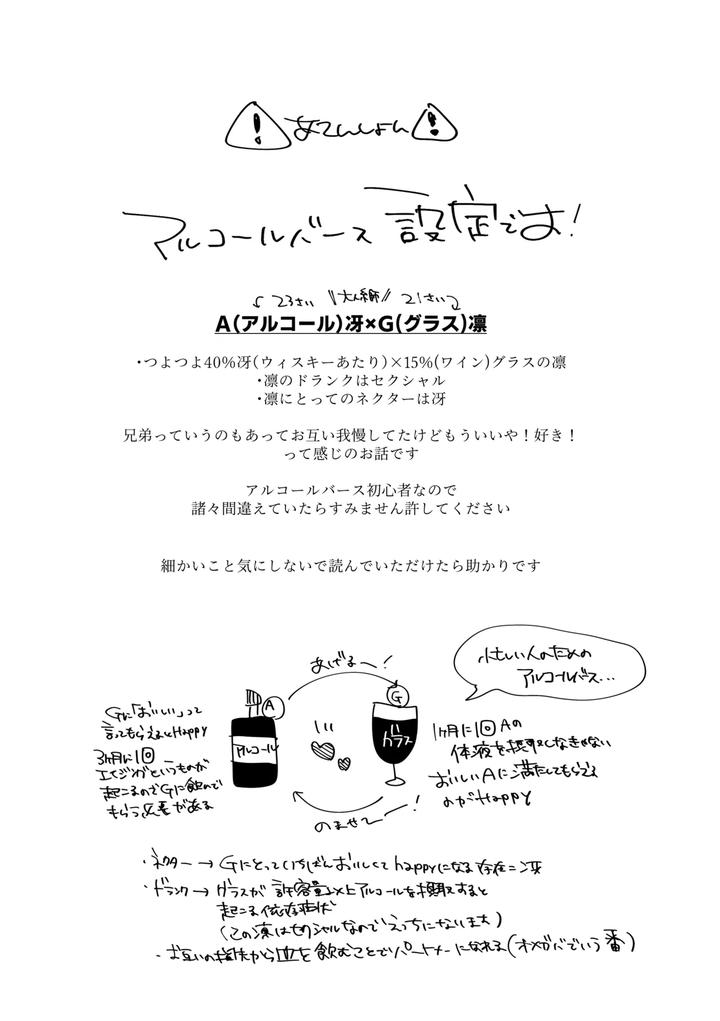 ! あてんしょん !
アルコールバース設定です!
23さい \\大人余市// 21さい
A(アルコール)冴×G(グラス)凛
・つよつよ40%冴(ウィスキーあたり)×15%(ワイン)グラスの凛
・凛のドランクはセクシャル
・凛にとってのネクターは冴
兄弟っていうのもあってお互い我慢してたけどもういいや!好き!
って感じのお話です
アルコールバース初心者なので
諸々間違えていたらすみません許してください
細かいこと気にしないで読んでいただけたら助かりです
忙しい人のための
アルコールバース…
あげるー!
A
アルコール
G
グラス
のませてー!
Gに「おいしい」って
言ってもらえるとHappy
3ヶ月に1回
エイジングというものが
起こるのでGに飲んで
もらう必要がある
1ヶ月に1回Aの
体液を摂取しなきゃない
おいしいAに満たしてもらえる
のがHappy
・ネクター→Gにとっていちばんおいしくてhappyになる存在=冴
・ドランク→グラスが許容量以上アルコールを摂取すると
起こる依存症状
(この凛はセクシャルなのでえっちになります)
・お互いの指先から血を飲むことでパートナーになれる(オメガバでいう番)